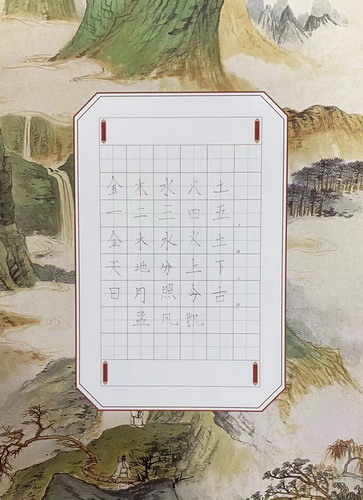 金木水火土
一二三四五，
金木水火土。
天地分上下，
日月照今古。
孟凡凯